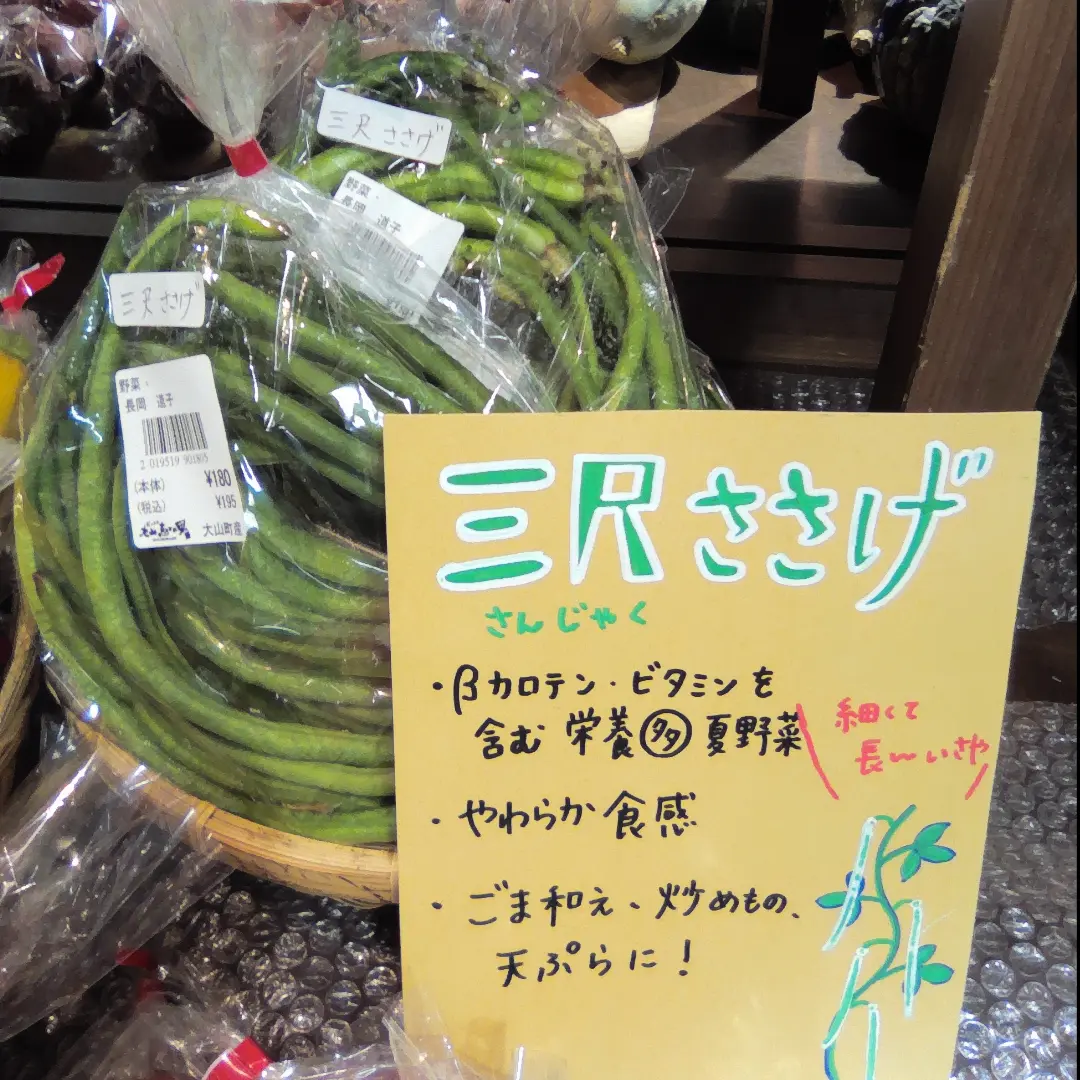 三尺ささげ
野菜:
長岡 道子
三尺ささげ
野菜:
長岡 道子
2 019519 901805
(本体) ¥180
(税込) ¥195
大山町産
三尺ささげ
さんじゃく
・βカロテン・ビタミンを
含む 栄養多 夏野菜
細くて
長〜いさや
・やわらか食感
・ごま和え、炒めもの、
天ぷらに!